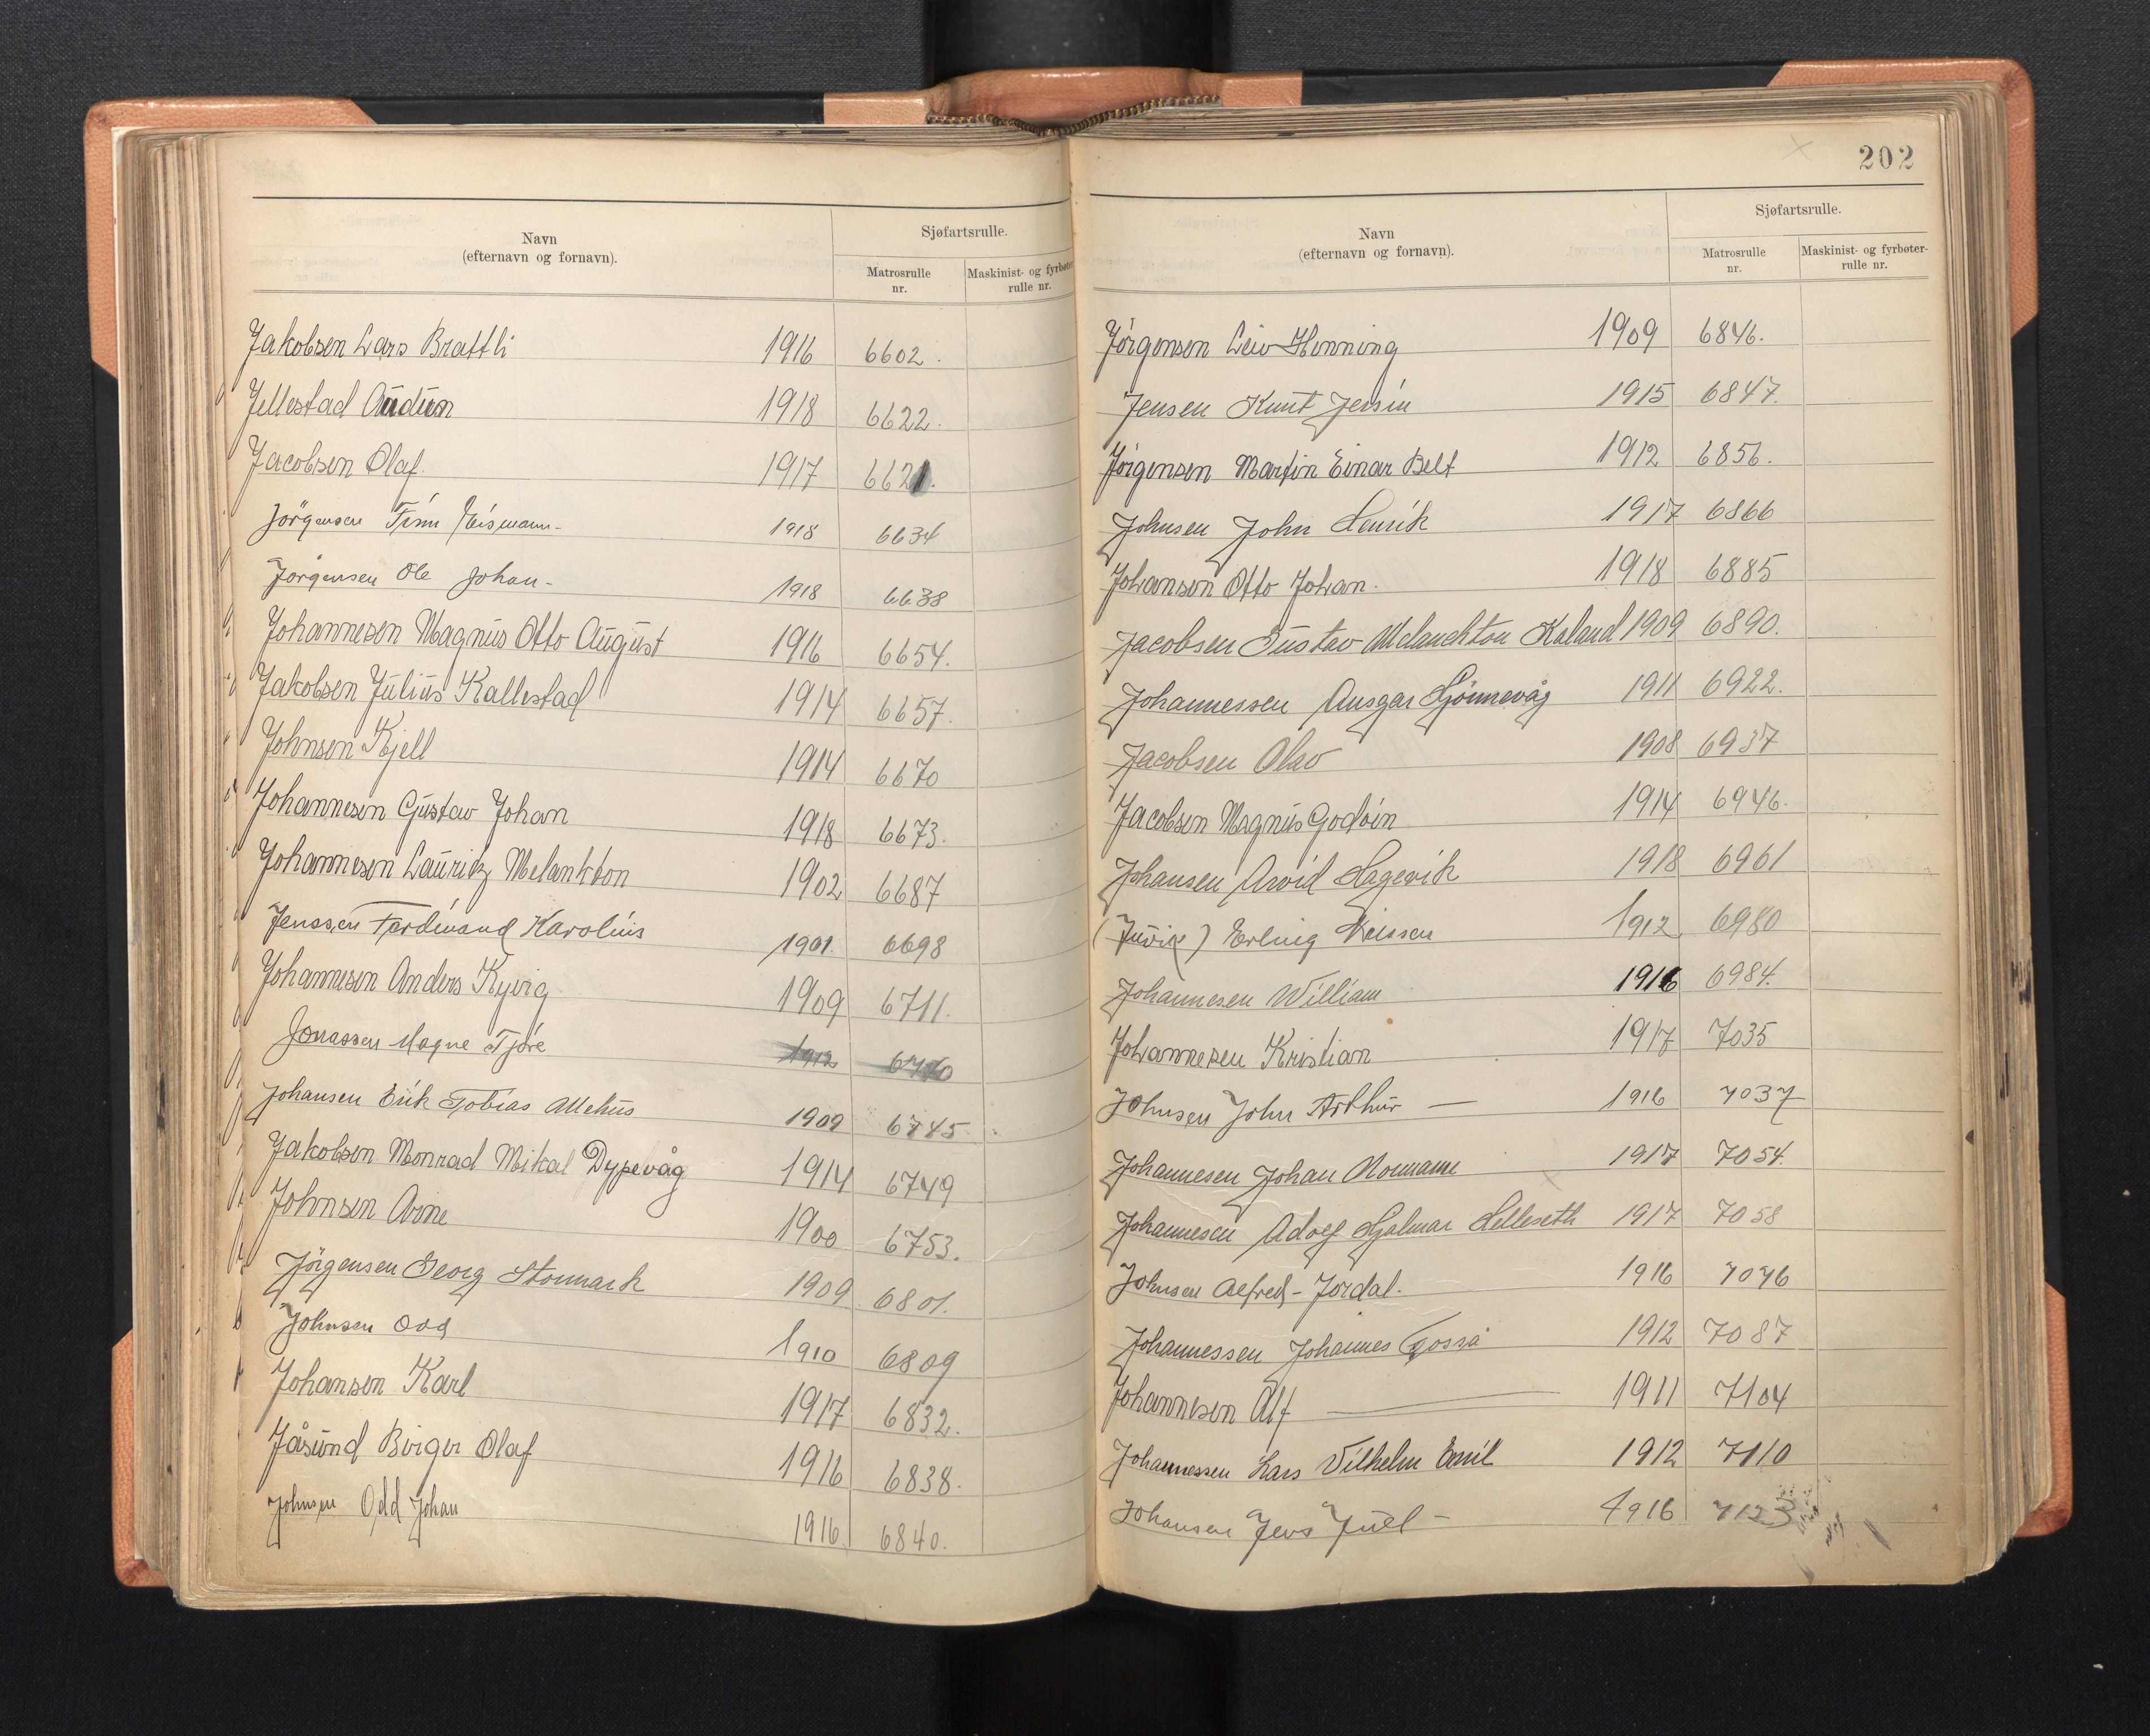 Navn
(efternavn og fornavn).
Sjøfartsrulle.
Matrosrulle
nr.
Maskinist- og fyrbøter-
rulle nr.
Jakobsen Lars Brattli 1916 6602.
Jellestad Audun 1918 6622.
Jacobsen Olaf. 1917 6621.
Jörgensen Finn 1918 6634
Jörgensen Ole Johan- 1918 6638
Johannesen Magnus Otto August 1916 6654.
Jakobsen Julius Kallestad 1914 6657.
Johnsen Kjell 1914 6670
Johannesen Gustav Johan 1918 6673.
Johannesen Lauritz Melankton 1902 6687
Jenssen Ferdinand Karolius 1901. 6698
Johannesen Anders Kyvig 1909 6711.
Jonassen Magne Tjöre 1912
Johansen Erik Tobias Mehus 1909 6745
Jakobsen Monrad Mikal Dypevåg 1914 6749
Johnsen Arne 1900 6753.
Jörgensen Georg Stormark 1909 6801.
Johnsen Odd 1910 6809
Johansen Karl 1917 6832.
Jåsund Birger Olaf 1916 6838.
Johnsen Odd Johan 1916 6840.
202
Navn
(efternavn og fornavn).
Sjøfartsrulle.
Matrosrulle
nr.
Maskinist- og fyrbøter-
rulle nr.
Jörgensen Leiv Henning 1909 6846.
Jensen Knut Jensin 1915 6847.
Jörgensen Martin Einar Belt 1912 6856.
Johnsen John Henrik 1917 6866
Johansen Otto Johan. 1918 6885
Jacobsen Gustav Melanchton Kaland 1909 6890.
Johannessen Ansgar Hjönnevåg 1911 6922.
Jacobsen Olav 1908 6937
Jacobsen Magnus Godvin 1914 6946.
Johansen Arvid Hagevik 1918 6961
(Juvik) Erling Nilssen 1912 6980
Johannesen William 1916 6984.
Johannesen Kristian 1917 7035
Johnsen John Arthur — 1916 7037
Johannesen Johan Normann 1917 7054.
Johannesen Adolf Hjalmar Helleseth 1917 7058
Johnsen Alfred - Jordal. 1916 7076
Johannessen Johannes 1912 7087
Johannesen Alf — 1911 7104
Johannessen Lars Vilhelm Emil 1912 7110
Johansen Jens Juel - 1916 7123